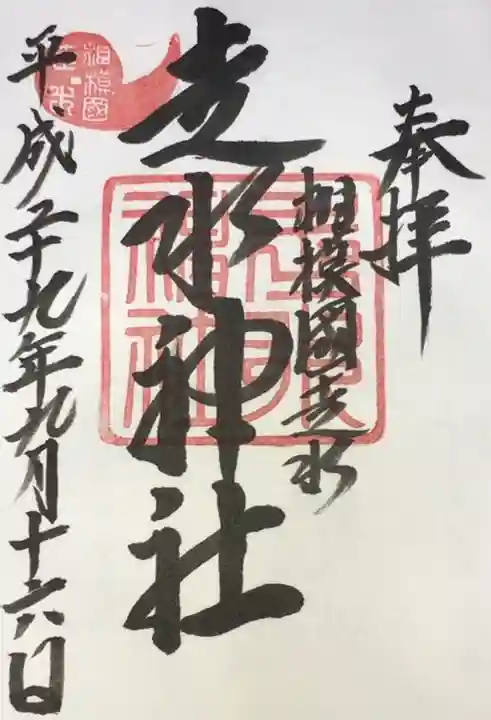 奉拝
相模國走水
走水神社
平成二十九年九月十六日
相模國